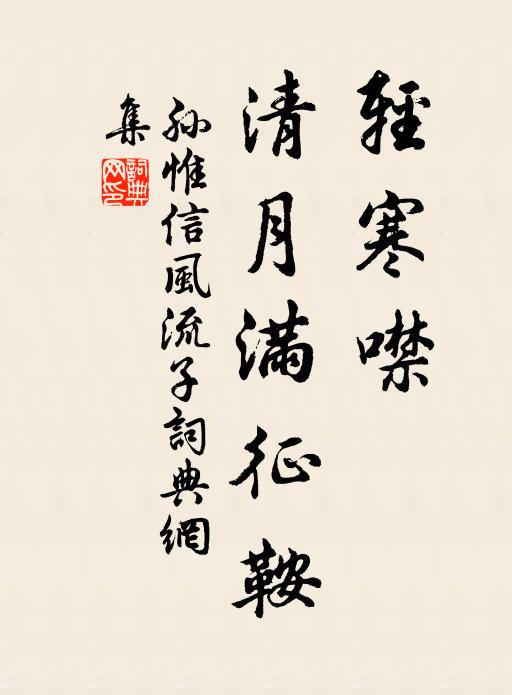 輕寒噤
清月滿征鞍
孙惟信風流子詞典網
集
詞典
网印